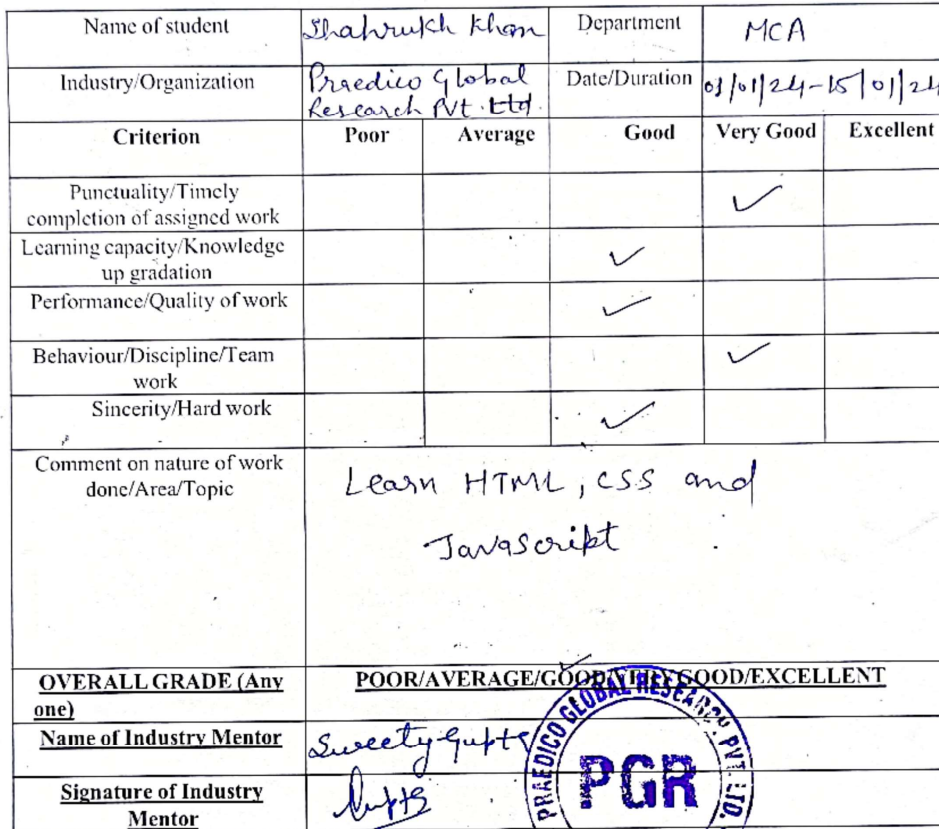 Name of student Shahrukh Khan Department MCA
Industry/Organization Praedico Global Date/Duration 01/01/24-15/01/24
Research Pvt. Ltd.
Criterion Poor Average Good Very Good Excellent
Punctuality/Timely ✓
completion of assigned work
Learning capacity/Knowledge ✓
up gradation
Performance/Quality of work ✓
Behaviour/Discipline/Team ✓
work
Sincerity/Hard work ✓
Comment on nature of work Learn HTML, CSS and
done/Area/Topic
JavaScript
OVERALL GRADE (Any POOR/AVERAGE/GOOD/VERY GOOD/EXCELLENT
one)
Name of Industry Mentor Sweety Gupta
Signature of Industry Gupta
Mentor
PRAEDICO GLOBAL RESEARCH PVT. LTD.
PGR